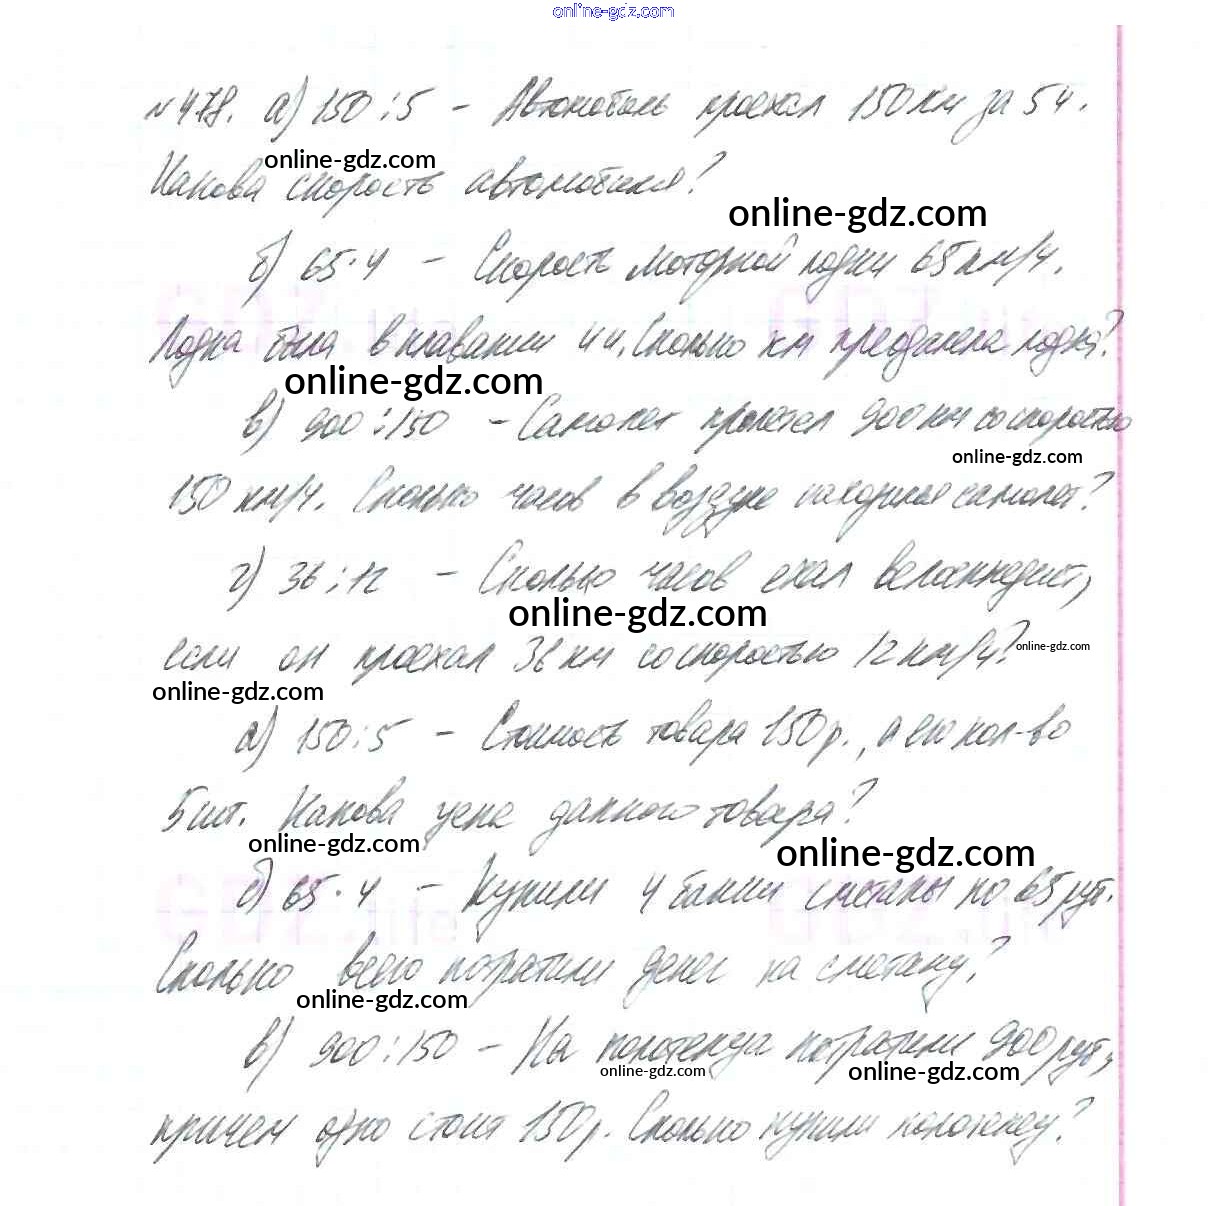 online-gdz.com
№478. а) 150:5 – Автомобиль проехал 150 км за 5 ч.
online-gdz.com
Какова скорость автомобиля?
online-gdz.com
б) 65·4 – Скорость моторной лодки 65 км/ч.
GDZ.life GDZ.life
Лодка была в плавании 4 ч. Сколько км преодолела лодка?
online-gdz.com
в) 900:150 – Самолет пролетел 900 км со скоростью
online-gdz.com
150 км/ч. Сколько часов в воздухе находился самолет?
г) 36:12 – Сколько часов ехал велосипедист,
online-gdz.com
если он проехал 36 км со скоростью 12 км/ч?
online-gdz.com
online-gdz.com
а) 150:5 – Стоимость товара 150 р., а его кол-во
5 шт. Какова цена данного товара?
online-gdz.com
online-gdz.com
б) 65·4 – Купили 4 банки сметаны по 65 руб.
GDZ.life GDZ.life
Сколько всего потратили денег на сметану?
online-gdz.com
в) 900:150 – На полотенца потратили 900 руб,
online-gdz.com
online-gdz.com
причем одно стоит 150 р. Сколько купили полотенец?